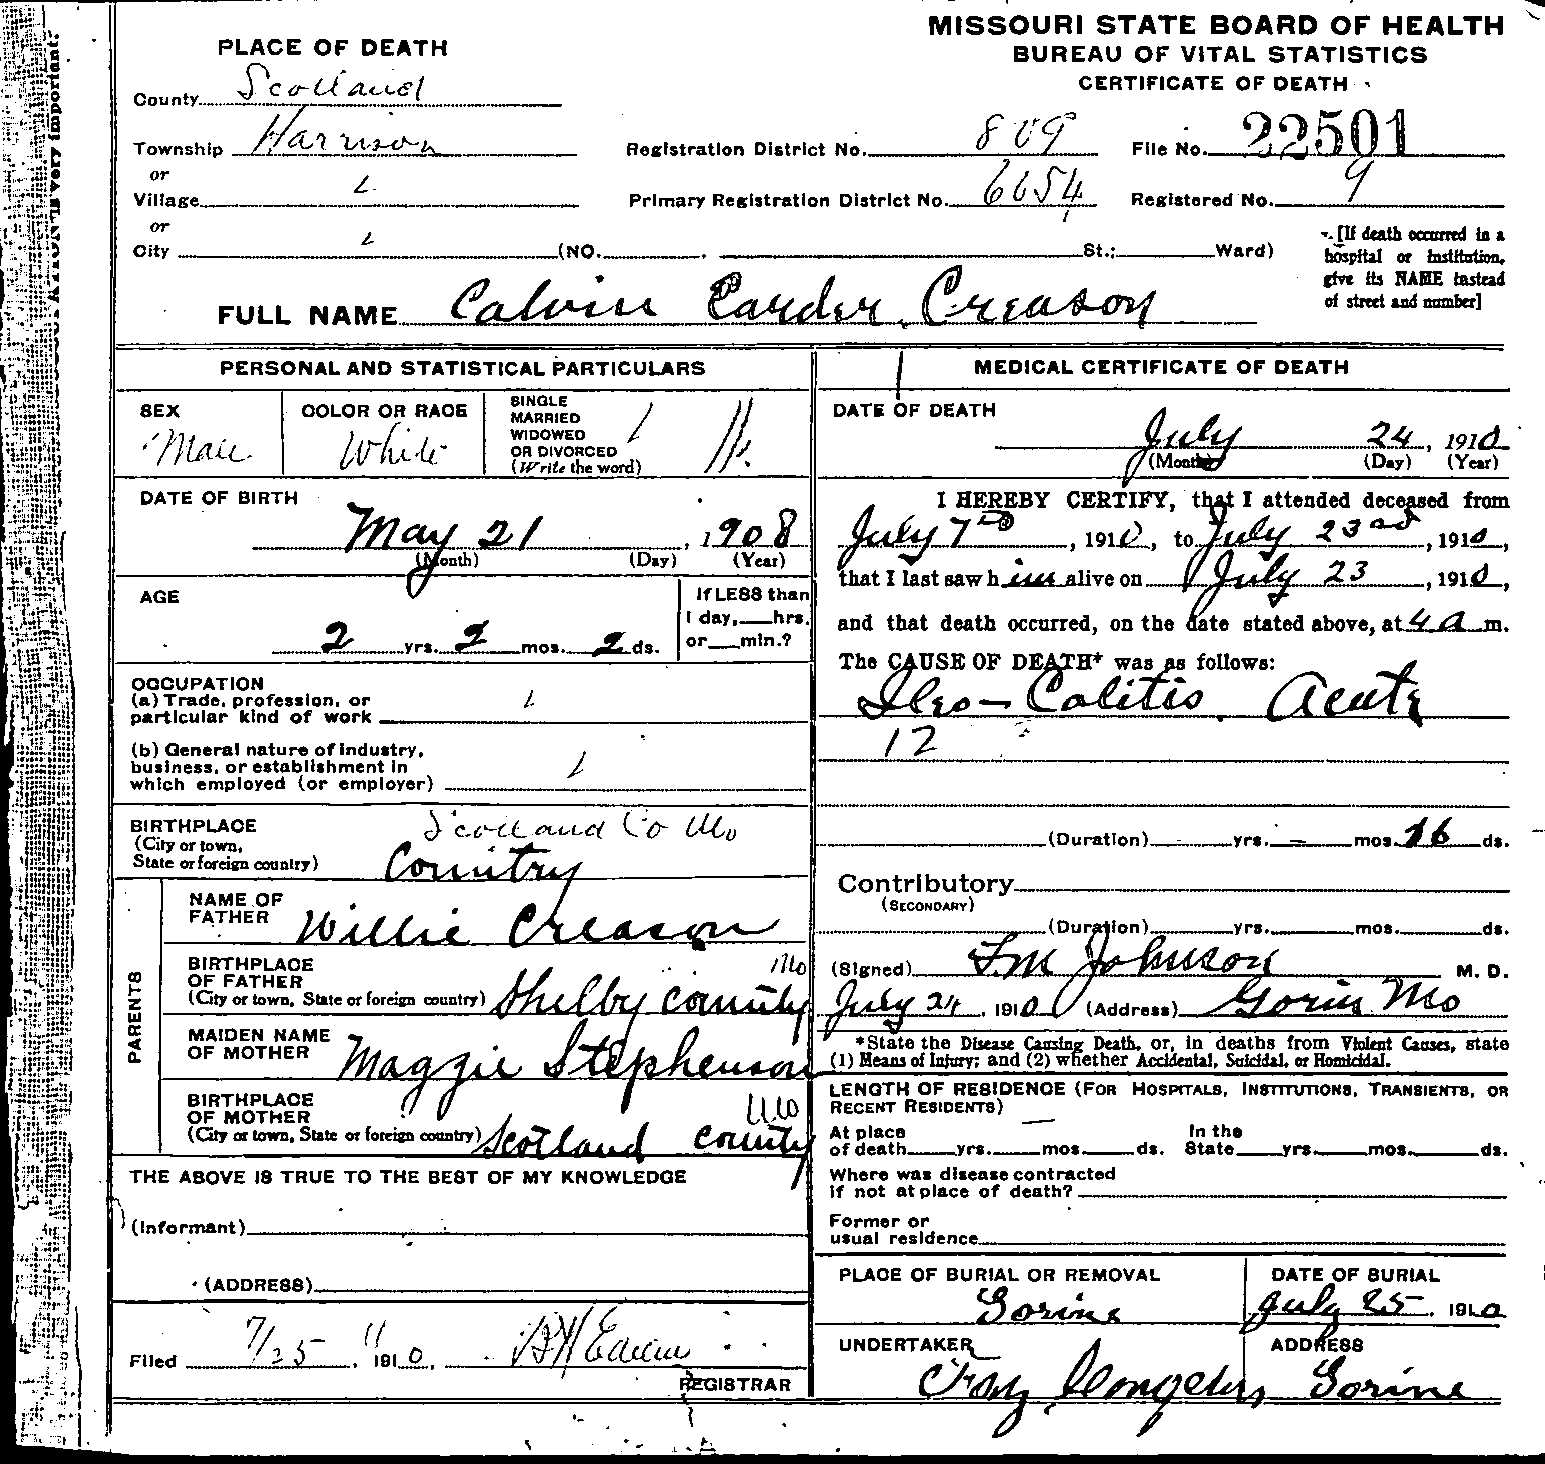 MISSOURI STATE BOARD OF HEALTH
BUREAU OF VITAL STATISTICS
CERTIFICATE OF DEATH
PLACE OF DEATH
County Scotland
Township Harrison
or
Village
or
City (NO. St.; Ward)
Registration District No. 809 File No. 22501
Primary Registration District No. 6654 Registered No. 9
[If death occurred in a
hospital or institution,
give its NAME instead
of street and number]
FULL NAME Calvin Carder Creason
PERSONAL AND STATISTICAL PARTICULARS
SEX
Male
COLOR OR RACE
White
SINGLE
MARRIED
WIDOWED
OR DIVORCED
(Write the word)
DATE OF BIRTH
May 21, 1908
(Month) (Day) (Year)
AGE
2 yrs. 2 mos. 2 ds.
If LESS than
1 day,__hrs.
or__min.?
OCCUPATION
(a) Trade, profession, or
particular kind of work
(b) General nature of industry,
business, or establishment in
which employed (or employer)
BIRTHPLACE
(City or town,
State or foreign country)
Scotland Co Mo
Country
PARENTS
NAME OF
FATHER Willie Creason
BIRTHPLACE
OF FATHER
(City or town, State or foreign country) Shelby County Mo
MAIDEN NAME
OF MOTHER Maggie Stephenson
BIRTHPLACE
OF MOTHER
(City or town, State or foreign country) Scotland County Mo
THE ABOVE IS TRUE TO THE BEST OF MY KNOWLEDGE
(Informant)
(ADDRESS)
Filed 7/25, 1910,
REGISTRAR
MEDICAL CERTIFICATE OF DEATH
DATE OF DEATH
July 24, 1910
(Month) (Day) (Year)
I HEREBY CERTIFY, that I attended deceased from
July 7th, 1910, to July 23rd, 1910,
that I last saw him alive on July 23, 1910,
and that death occurred, on the date stated above, at 4 a m.
The CAUSE OF DEATH* was as follows:
Ileo-Colitis Acute
12
(Duration) yrs. mos. 16 ds.
Contributory
(SECONDARY)
(Duration) yrs. mos. ds.
(Signed) Johnson M. D.
July 24, 1910 (Address) Gorin Mo
*State the Disease Causing Death, or, in deaths from Violent Causes, state
(1) Means of Injury; and (2) whether Accidental, Suicidal, or Homicidal.
LENGTH OF RESIDENCE (FOR HOSPITALS, INSTITUTIONS, TRANSIENTS, OR
RECENT RESIDENTS)
At place
of death yrs. mos. ds.
In the
State yrs. mos. ds.
Where was disease contracted
if not at place of death?
Former or
usual residence
PLACE OF BURIAL OR REMOVAL
Gorine
DATE OF BURIAL
July 25, 1910
UNDERTAKER
ADDRESS
Gorine